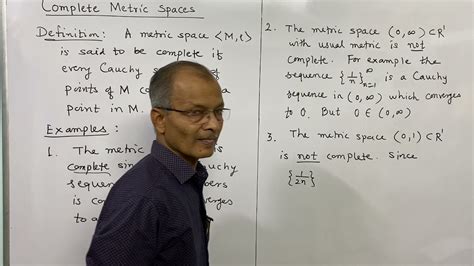 Complete Metric Spaces
Definition: A metric space <M, ρ>
is said to be complete if
every Cauchy
points of M
point in M.
Examples:
1. The metric
complete since
Cauchy
sequence
is co
verges
to a
2. The metric space (0, ∞) ⊂ R¹
with usual metric is not
complete. For example the
sequence {1/n}ₙ₌₁^∞ is a Cauchy
sequence in (0, ∞) which converges
to 0. But 0 ∈ (0, ∞)
3. The metric space (0, 1) ⊂ R¹
is not complete. Since
{1/2n}